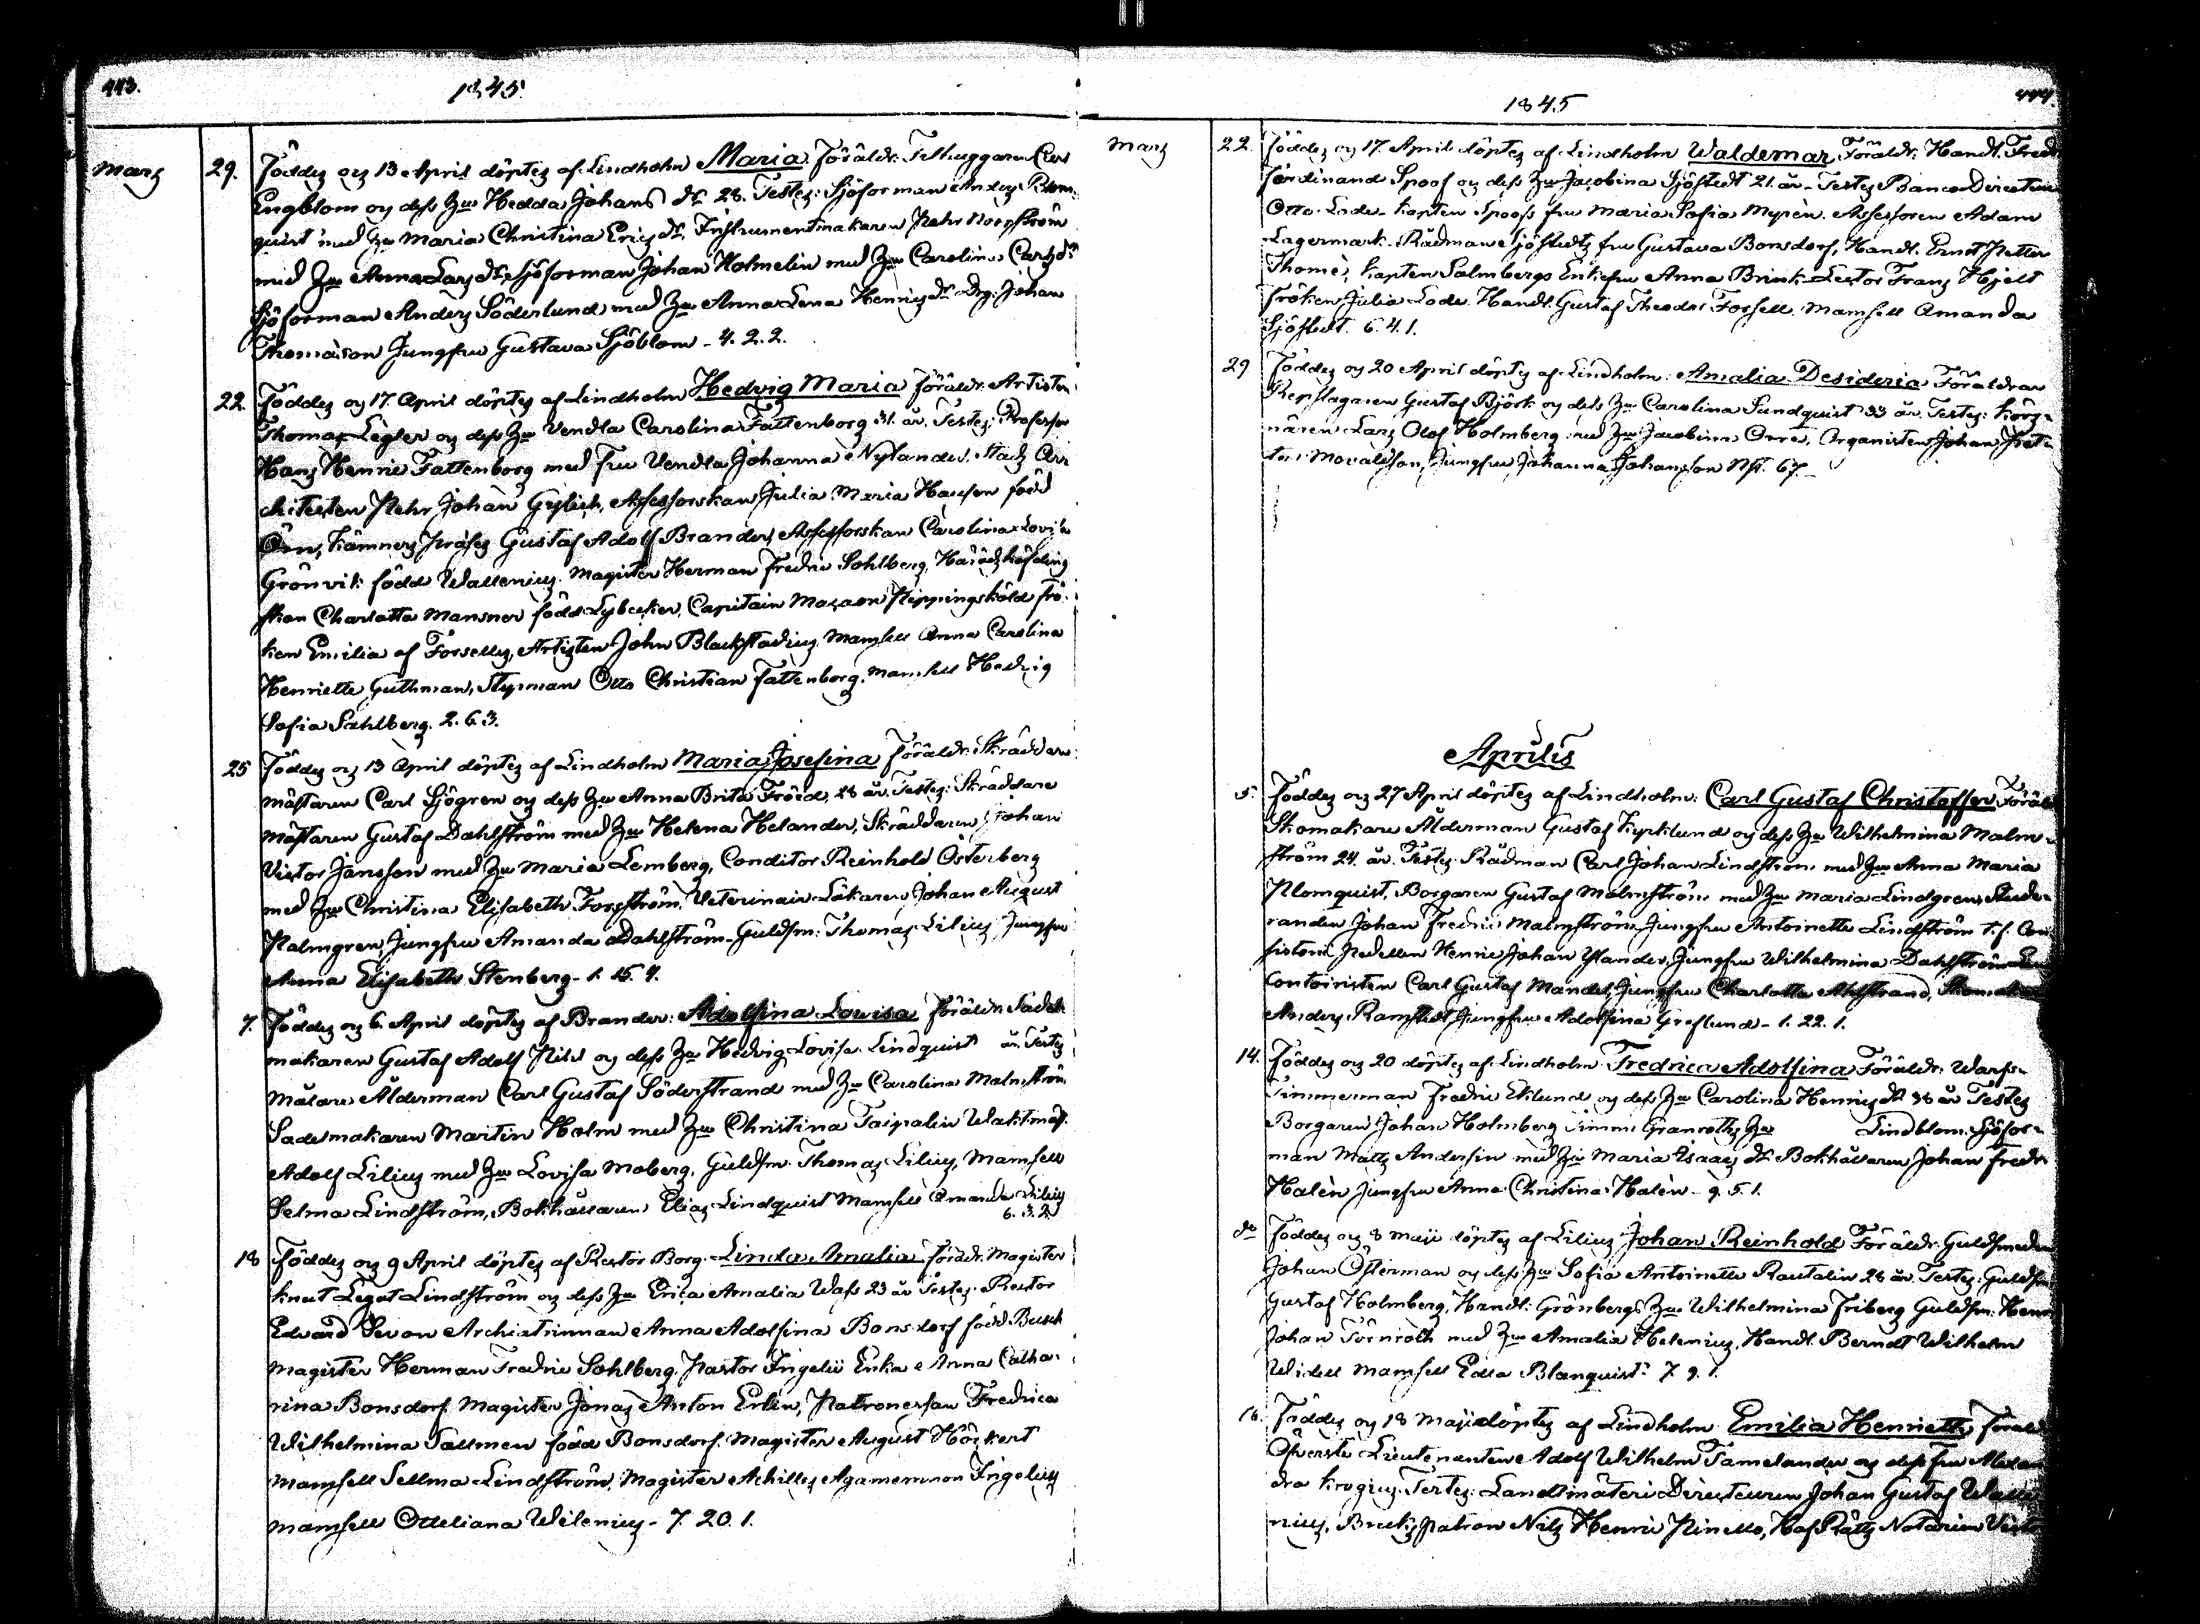 443.
1845
Marz 29. Föddes och 13 April döptes af Lindholm Maria. Föräldr. Tilhuggaren Carl
Engblom och dess Hu Hedda Johans dr 28. Testes: Sjöforman Anders Blom-
quist med Hu Maria Christina Erics dr, Instrumentmakaren Pehr Norström
med Hu Anna Lars dr, Sjöforman Johan Holmelin med Hu Carolina Carls dr
Sjöforman Anders Söderlund med Hu Anna Lena Henrics dr Drg: Johan
Thomason Jungfru Gustava Sjöblom - 4. 2. 2.
22. Föddes och 17. April döptes af Lindholm Hedvig Maria föräldr. Artisten
Thomas Legler och dess Hu Vendla Carolina Fattenborg 31. år. Testes: Professor
Hans Henric Fattenborg med fru Vendla Johanna Nylander. Stads Arr
chitecten Pehr Johan Gylich, Assessorskan Julia Maria Hausen född
Örn, Kämners Præses Gustaf Adolf Brander, Assessorskan Carolina Lovisa
Grönvik född Wallenius. Magister Herman Fredric Sohlberg, Häradshöfding
skan Charlotta Mansner född Lybecker, Capitain Magnus Nippingsköld frö-
ken Emilia af Forselles, Artisten John Blackstadius Mamsell Anna Carolina
Henriette Guthman, Styrman Otto Christian Fattenborg, Mamsell Hedvig
Sofia Sahlberg. 2. 6. 3.
25 Föddes och 13 April döptes af Lindholm Maria Josefina föräldr: Skräddare
mästaren Carl Sjögren och dess Hu Anna Brita Fröid, 28 år. Testes: Skräddare
mästaren Gustaf Dahlström med Hu Helena Helander, Skräddaren Johan
Victor Jansson med Hu Maria Lemberg, Conditor Reinhold Österberg
med Hu Christina Elisabeth Forsström, Veterinair-Läkaren Johan August
Palmgren Jungfru Amanda Dahlström - Guldsm: Thomas Lilius Jungfru
Anna Elisabeth Stenberg - 1. 15. 4.
7. Föddes och 6. April döptes af Brander: Adolfina Lovisa föräldr: Sadel-
makaren Gustaf Adolf och dess Hu Hedvig Lovisa Lindquist år. Testes
Målare Ålderman Carl Gustaf Söderstrand med Hu Carolina Malmström
Sadelmakaren Martin Holm med Hu Christina Taipalin Waktmäst.
Adolf Lilius med Hu Lovisa Moberg, Guldsm: Thomas Lilius, Mamsell
Selma Lindström, Bokhållaren Elias Lindquist Mamsell Amanda Lilius
6. 3. 2.
18 Föddes och 9 April döptes af Rector Borg. Linda Amalia föräldr. Magister
Knut Legat Lindström och dess Hu Erica Amalia Wass 23 år Testes. Rector
Edvard Sevon Archiatrinnan Anna Adolfina Bonsdorf född Busch
Magister Herman Fredric Sohlberg, Pastor Ingelii Enka Anna Catha-
rina Bonsdorf. Magister Jonas Anton Erlin, Patronessan Fredrica
Wilhelmina Tallmen född Bonsdorf. Magister August Höckert
Mamsell Sellma Lindström, Magister Achilles Agamemnon Ingelius
Mamsell Otteliana Wilenius - 7. 20. 1.
444.
1845
Marz 22. Föddes och 17. April döptes af Lindholm Waldemar, Föräldr: Handl. Fredr
Ferdinand Spoof och dess Hu Jacobina Sjöstedt 21. år. - Testes Banco Directeur
Otto Lode - Kapten Spoofs fru Maria Sofia Myrén. Assessoren Adam
Lagermark. Rådman Sjöstedts fru Gustava Bonsdorf, Handl. Ernst Petter
Thomé, Kapten Salmbergs Enkefru Anna Brink Lector Frans Hjelt
fröken Julia Lode. Handl. Gustaf Theodor Forssell Mamsell Amanda
Sjöstedt. 6. 4. 1.
29 Föddes och 20 April döptes af Lindholm. Amalia Desideria Föräldrar
Repslagaren Gustaf Björk och dess Hu Carolina Sundquist 33 år. Testes: Körs-
nären Lars Olof Holmberg med Hu Jacobina Orre, Organisten Johan
Jungfru Johanna Johansson Nst. 67.
Aprilis
5. Föddes och 27 April döptes af Lindholm: Carl Gustaf Christoffer, Föräld
Skomakare Ålderman Gustaf Kyrklund och dess Hu Wilhelmina Malm-
ström 24. år. Testes. Rådman Carl Johan Lindström med Hu Anna Maria
Plomquist, Borgaren Gustaf Malmström med Hu Maria Lindgren, Stude-
randen Johan Fredric Malmström Jungfru Antoinette Lindström t.f. Con-
sistorii Pedellen Henric Johan Ylander, Jungfru Wilhelmina Dahlström
Contoiristen Carl Gustaf Mandel, Jungfru Charlotta Ahlstrand,
Anders Ramstedt Jungfru Adolfina Greslund - 1. 22. 1.
14. Föddes och 20 döptes af Lindholm Fredrica Adolfina Föräldr: Warfs-
Timmerman Fredric Eklund och dess Hu Carolina Henrics dr 38 år Testes
Borgaren Johan Holmberg Timm: Granroths Hu Lindblom. Sjöfor-
man Matts Andersin med Hu Maria Isaacs dr Bokhållaren Johan Fredr
Halèn Jungfru Anna Christina Halèn - 9. 5. 1.
do Föddes och 8 Maji döptes af Lilius Johan Reinhold Föräldr: Guldsmeden
Johan Österman och dess Hu Sofia Antoinette Rautalin 28 år. Testes: Guldsm
Gustaf Holmberg, Handl: Grönbergs Hu Wilhelmina Friberg Guldsm: Henr
Johan Törnroth med Hu Amalia Helenius, Handl. Berndt Wilhelm
Widell Mamsell Edla Blanquist 7. 9. 1.
16. Föddes och 18 Maji döptes af Lindholm Emilia Henriette Föräld
Öfverste Lieutenanten Adolf Wilhelm Tamelander och dess fru Alexan
dra Krogius. Testes: Landtmäteri Directeuren Johan Gustaf Walle
nius, Bruks patron Nils Henric Pinello, Hof Rätts Notarien Victo